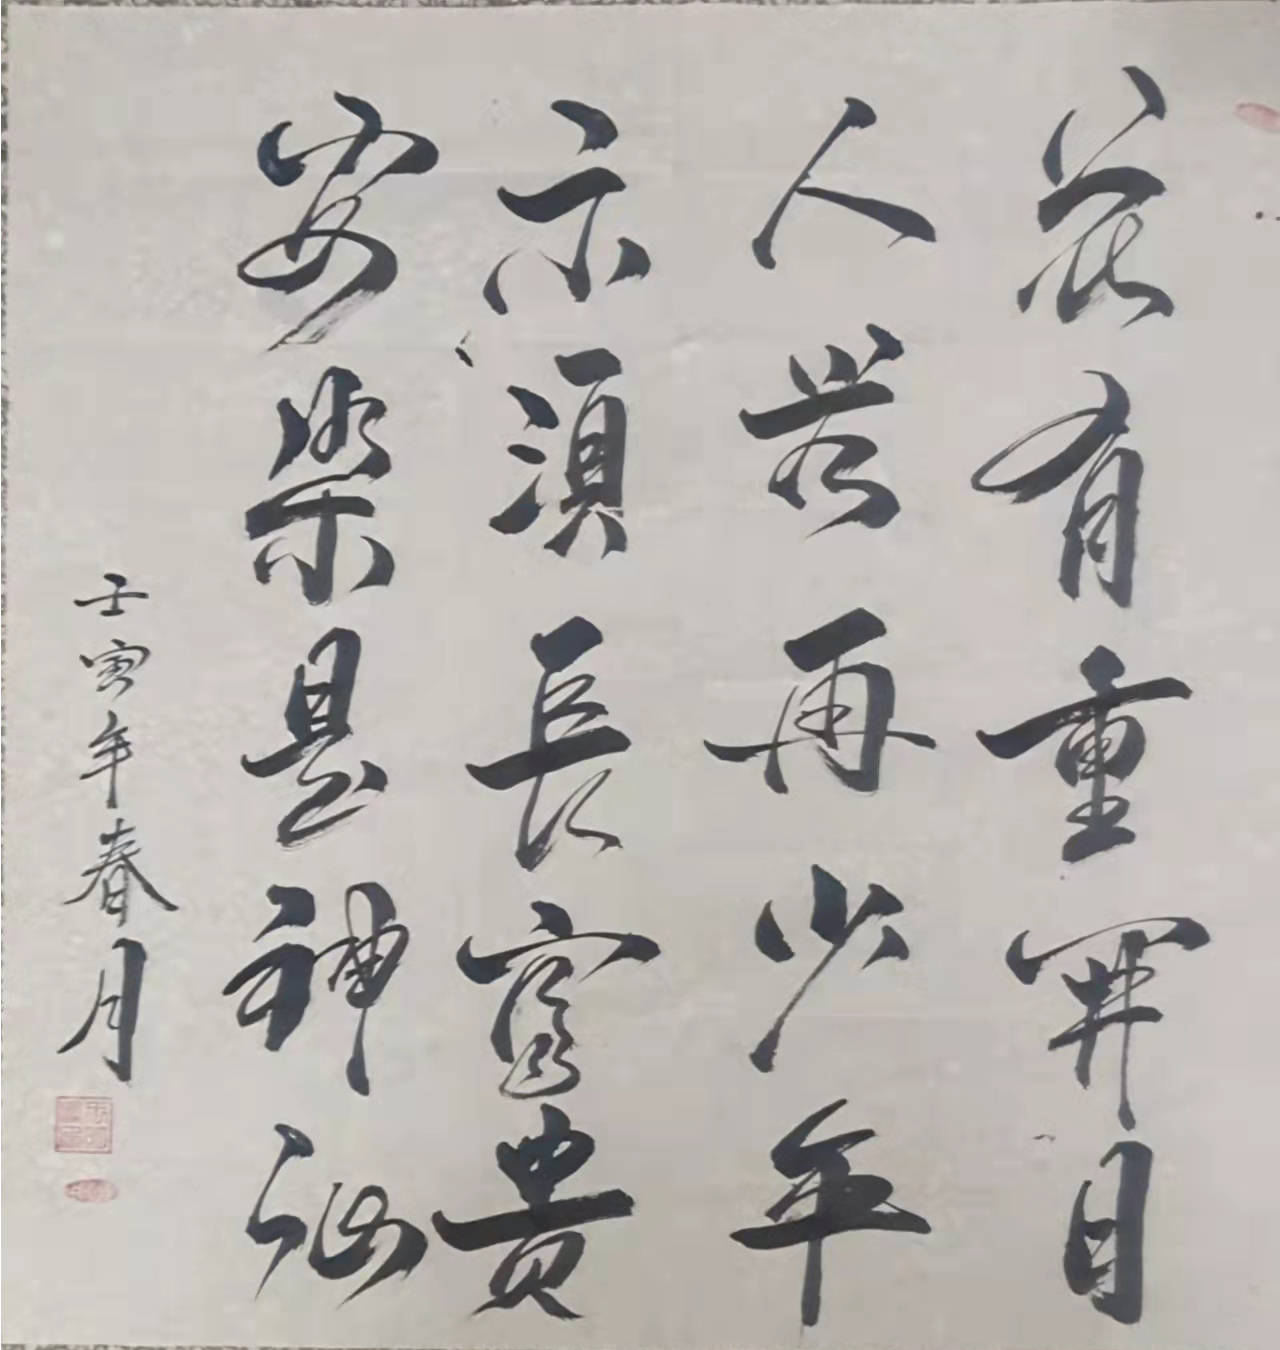 花有重開日
人無再少年
不須長富貴
安樂是神仙
壬寅年春月